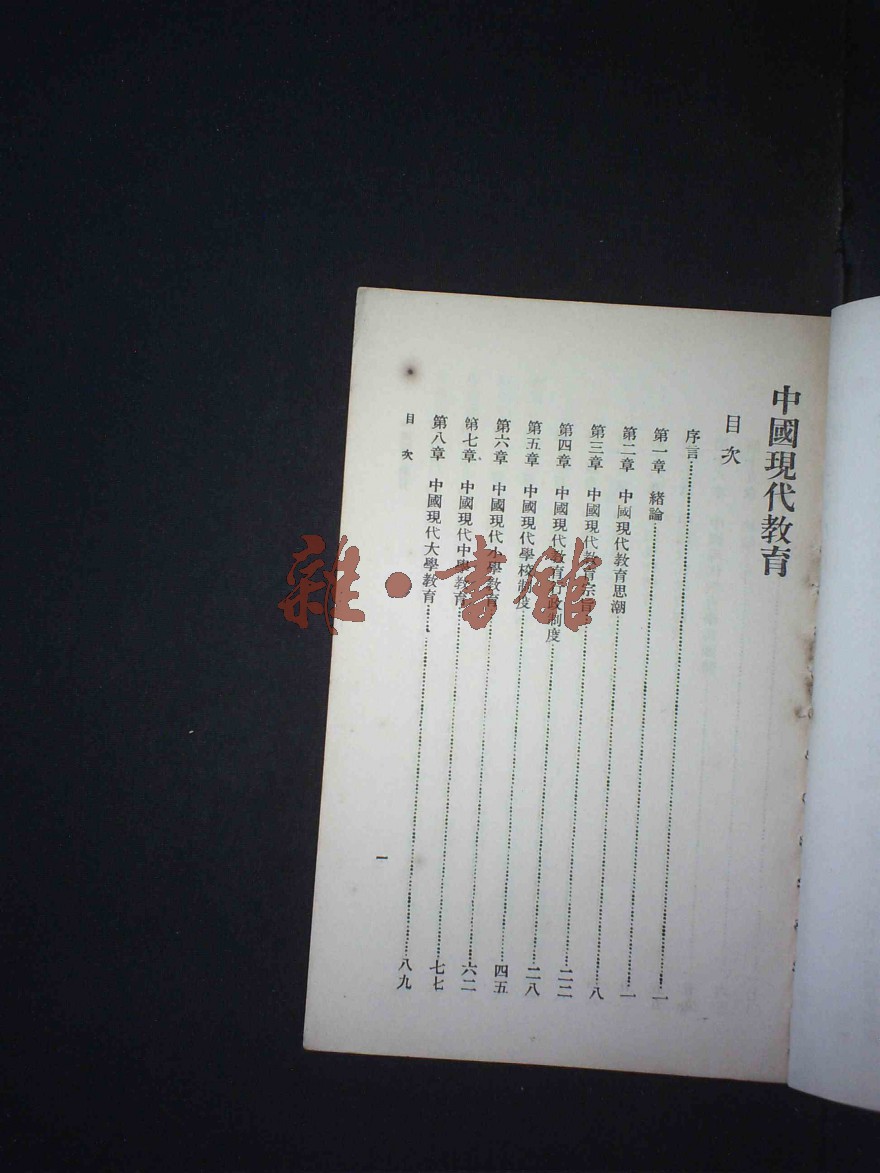 中國現代教育
目次
序言……一
第一章 緒論……一
第二章 中國現代教育思潮……八
第三章 中國現代教育宗旨……二二
第四章 中國現代教育行政制度……二八
第五章 中國現代學校制度……四五
第六章 中國現代小學教育……六二
第七章 中國現代中學教育……七七
第八章 中國現代大學教育……八九
目次
一
雜·書館